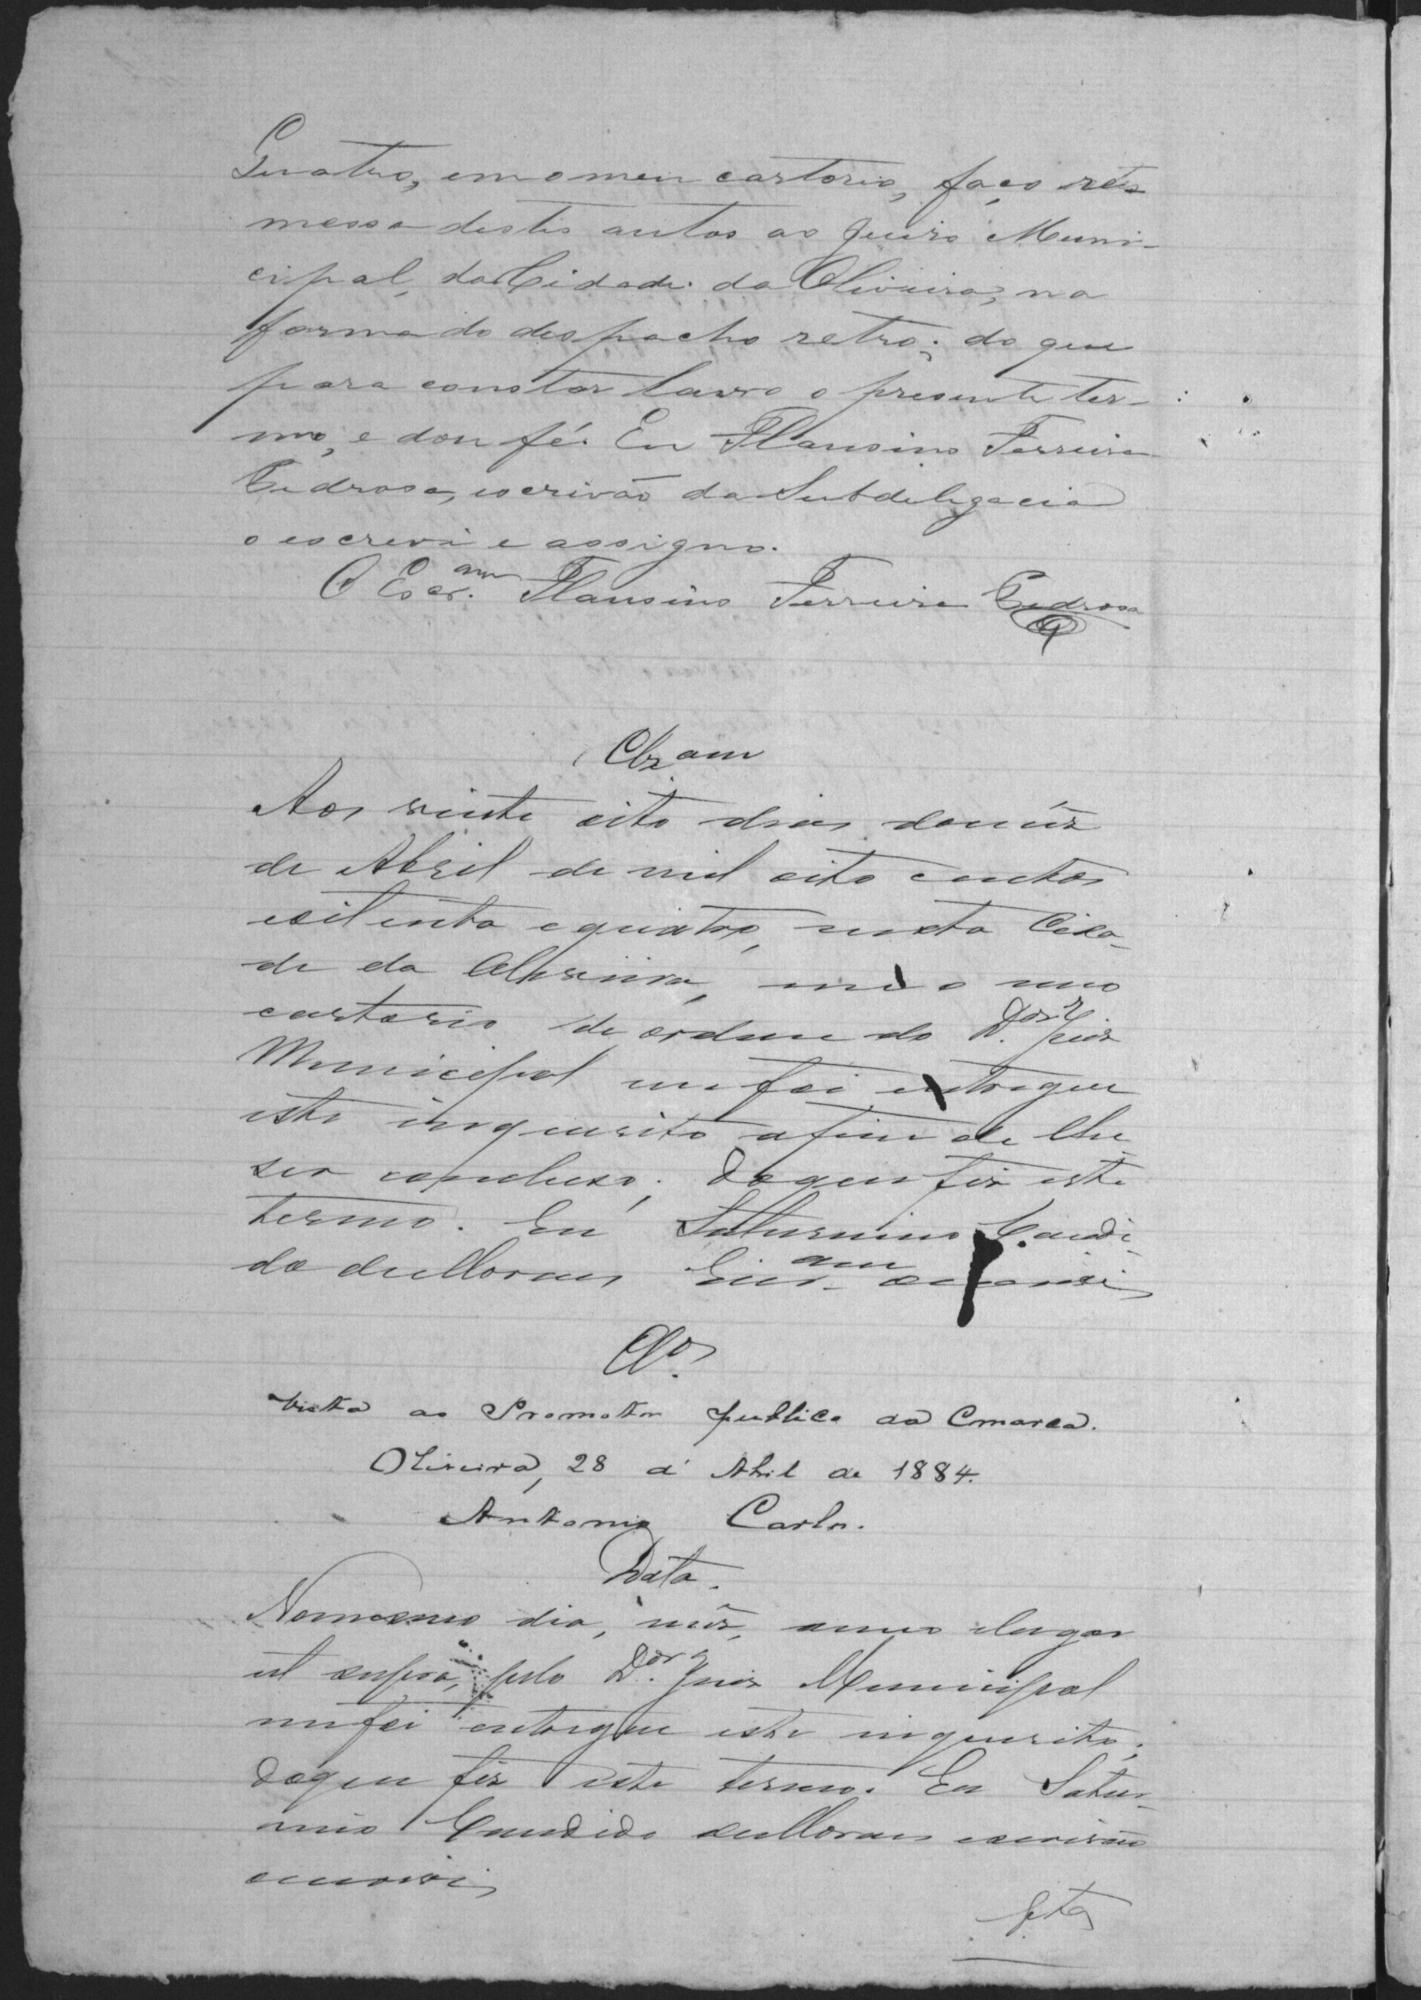 Quatro, em o meu cartorio, faço re-
messa destes autos ao Juizo Muni-
cipal, da Cidade da Oliveira, na
forma do despacho retro; do que
para constar lavro o presente ter-
mo, e dou fé. Eu Flausino Ferreira
Pedrosa, escrivão da Subdelegacia
o escrevi e assigno.
O Escr.am Flausino Ferreira Pedrosa
Clzam
Aos vinte oito dias do mês
de Abril de mil oito centos
e oitenta e quatro, nesta Cida-
de da Oliveira, em o meo
cartorio de ordem do D.or Juiz
Municipal me foi entregue
este inquerito a fim de lhe
ser concluso; do que fiz este
termo. Eu Saturnino Candi-
do de Moraes Escr.am escrevi
Clos
Vista ao Promotor publico da Comarca.
Oliveira, 28 d' Abril de 1884.
Antonio Carlos.
Data.
No mesmo dia, mês, anno e lugar
ut supra, pelo D.or Juiz Municipal
me foi entregue este inquerito;
do que fiz este termo. Eu Satur-
nino Candido de Moraes escrivão
escrevi